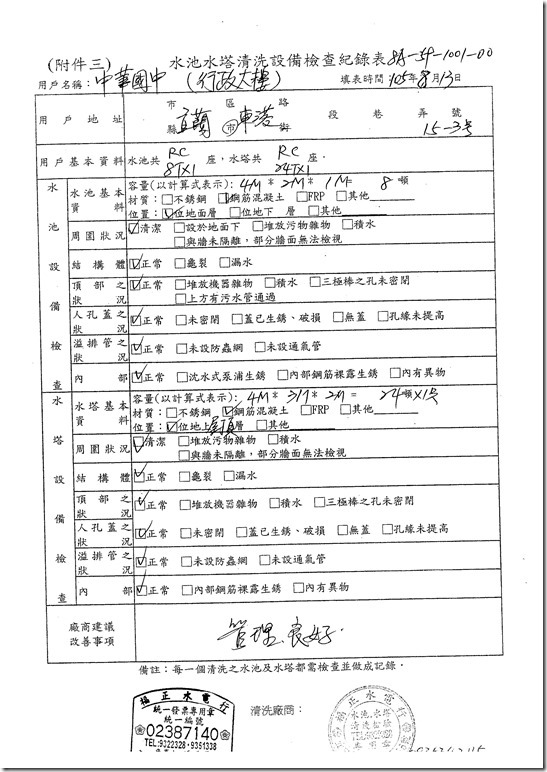 (附件三) 水池水塔清洗設備檢查紀錄表 8A-34-1001-00
用戶名稱：中華國中 (行政大樓) 填表時間 105年8月13日
用戶地址 宜蘭 市縣 區市 東港 路街 段 巷 弄 15-3號
用戶基本資料 水池共 RC 8T×1 座，水塔共 RC 24T×1 座．
水池設備檢查
水池基本資料 容量(以計算式表示)：4M * 2M * 1M = 8 噸
材質：□不銹鋼 ☑鋼筋混凝土 □FRP □其他
位置：☑位地面層 □位地下 層 □其他
周圍狀況 ☑清潔 □設於地面下 □堆放污穢雜物 □積水
□與牆未隔離，部分牆面無法檢視
結構體 ☑正常 □龜裂 □漏水
頂部之狀況 ☑正常 □堆放機器雜物 □積水 □三極棒之孔未密閉
□上方有污水管通過
人孔蓋之狀況 ☑正常 □未密閉 □蓋已生銹、破損 □無蓋 □孔緣未提高
溢排管之狀況 ☑正常 □未設防蟲網 □未設通氣管
內部 ☑正常 □沈水式泵浦生銹 □內部鋼筋裸露生銹 □內有異物
水塔設備檢查
水塔基本資料 容量(以計算式表示)：4M * 3M * 2M = 24噸×1号
材質：□不銹鋼 ☑鋼筋混凝土 □FRP □其他
位置：☑位地上 屋頂 層 □其他
周圍狀況 ☑清潔 □堆放污物雜物 □積水
□與牆未隔離，部分牆面無法檢視
結構體 ☑正常 □龜裂 □漏水
頂部之狀況 ☑正常 □堆放機器雜物 □積水 □三極棒之孔未密閉
人孔蓋之狀況 ☑正常 □未密閉 □蓋已生銹、破損 □無蓋 □孔緣未提高
溢排管之狀況 ☑正常 □未設防蟲網 □未設通氣管
內部 ☑正常 □內部鋼筋裸露生銹 □內有異物
廠商建議改善事項 管理良好.
備註：每一個清洗之水池及水塔都需檢查並做成記錄．
福正水電行
統一發票專用章
統一編號
02387140
TEL:9322328·9351338
清洗廠商：
福正水電行
水池.水塔